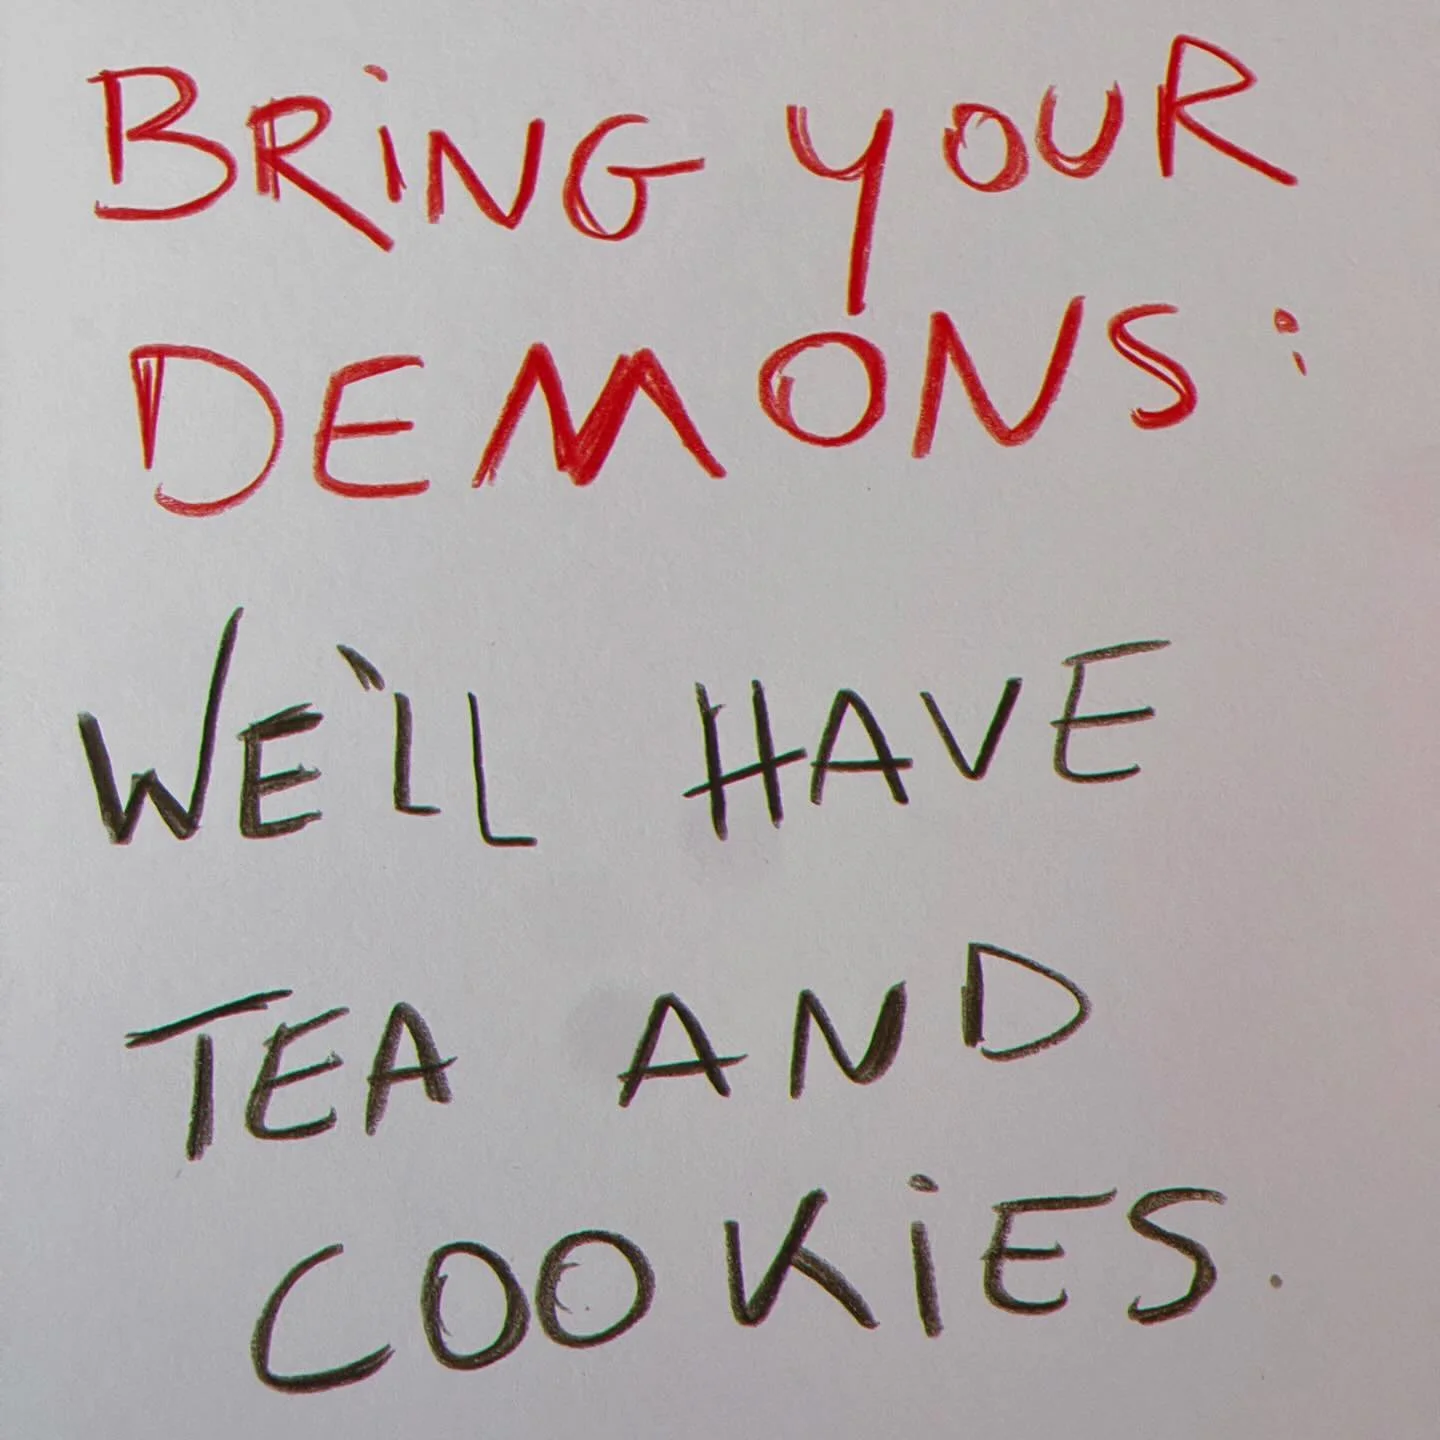 BRiNG YOUR
DEMONS:
WE'LL HAVE
TEA AND
COOKiES.